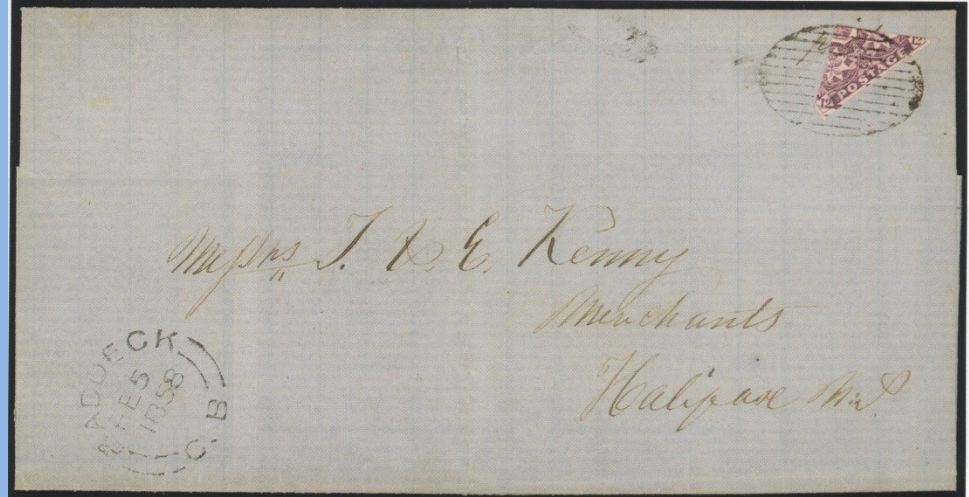 POSTAGE
Messrs T. & E. Kenny
Merchants
Halifax
BADDECK
1858
C. B